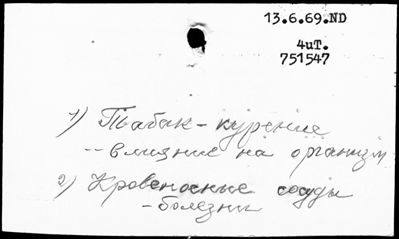 13.6.69.ND
4ит.
751547
1) Табак - курение
-- влияние на организм
2) Кровеносные сосуды
- болезни